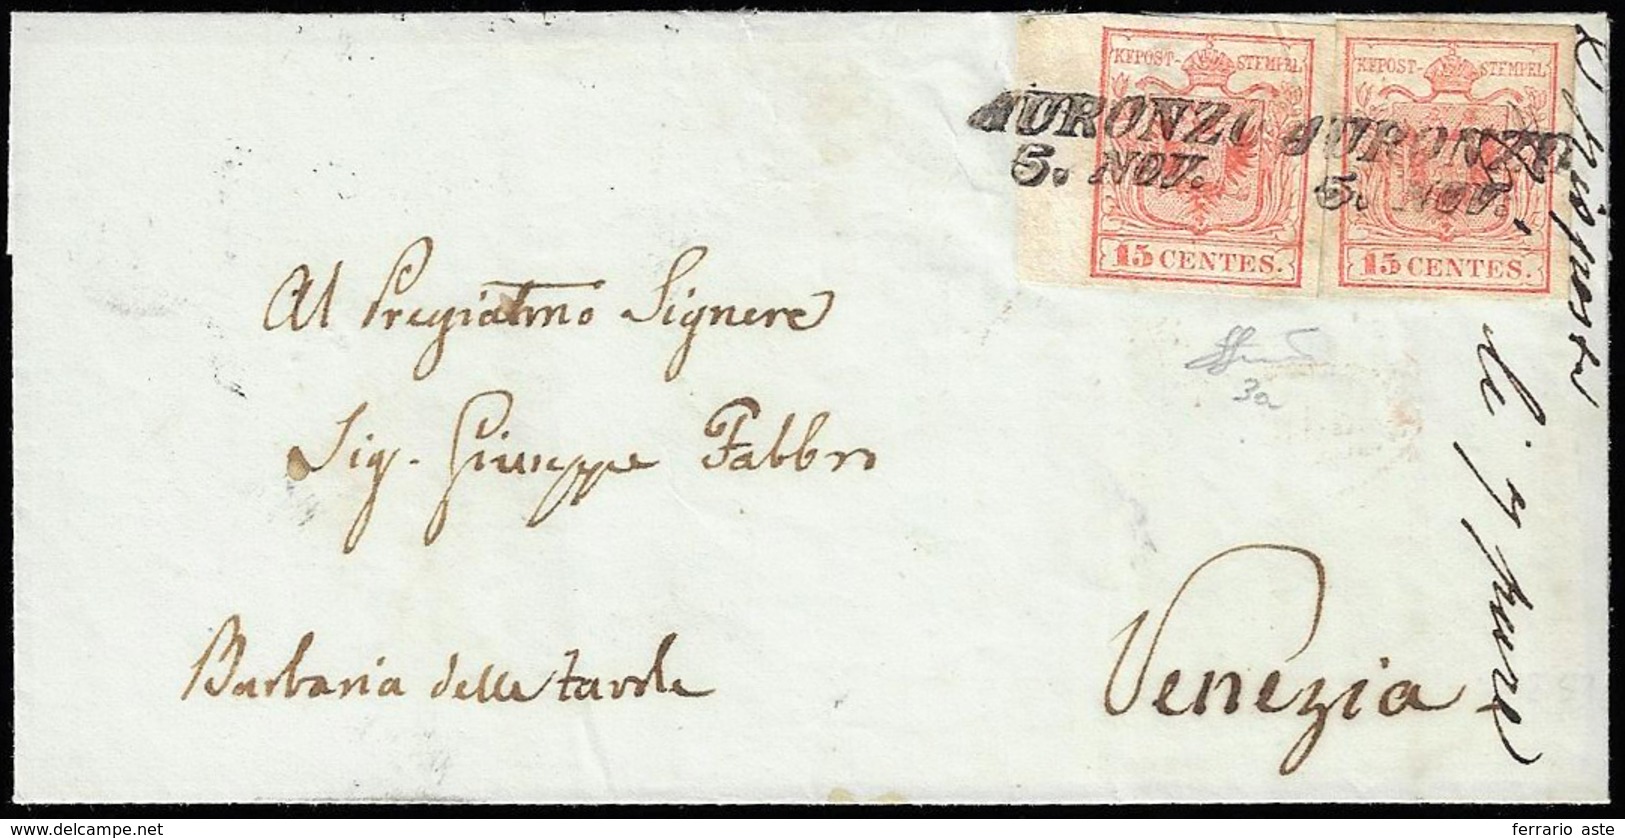 KK POST-STEMPEL KK POST-STEMPEL
AURONZO AURONZO
5. NOV. 5. NOV.
15 CENTES. 15 CENTES.
Al Pregiatmo Signore
3a
Sig. Giuseppe Fabbro
Barbaria delle Tavole
Venezia
Risposta
li 9
ferrario aste